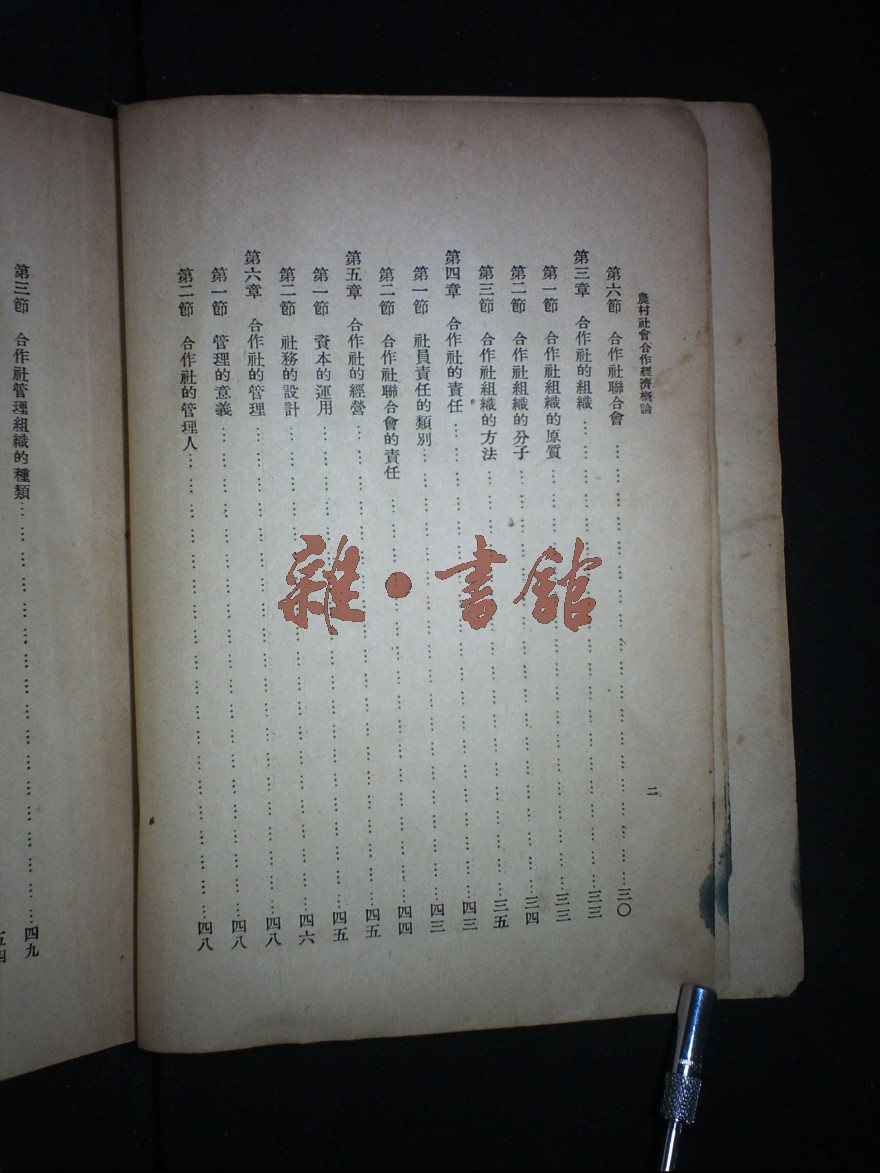 農村社會合作經濟概論 二
第六節 合作社聯合會……………三〇
第三章 合作社的組織……………三三
第一節 合作社組織的原質……………三三
第二節 合作社組織的分子……………三四
第三節 合作社組織的方法……………三五
第四章 合作社的責任……………四三
第一節 社員責任的類別……………四三
第二節 合作社聯合會的責任……………四四
第五章 合作社的經營……………四五
第一節 資本的運用……………四五
第二節 社務的設計……………四六
第六章 合作社的管理……………四八
第一節 管理的意義……………四八
第二節 合作社的管理人……………四八
第三節 合作社管理組織的種類……………四九
五四
雜●書館